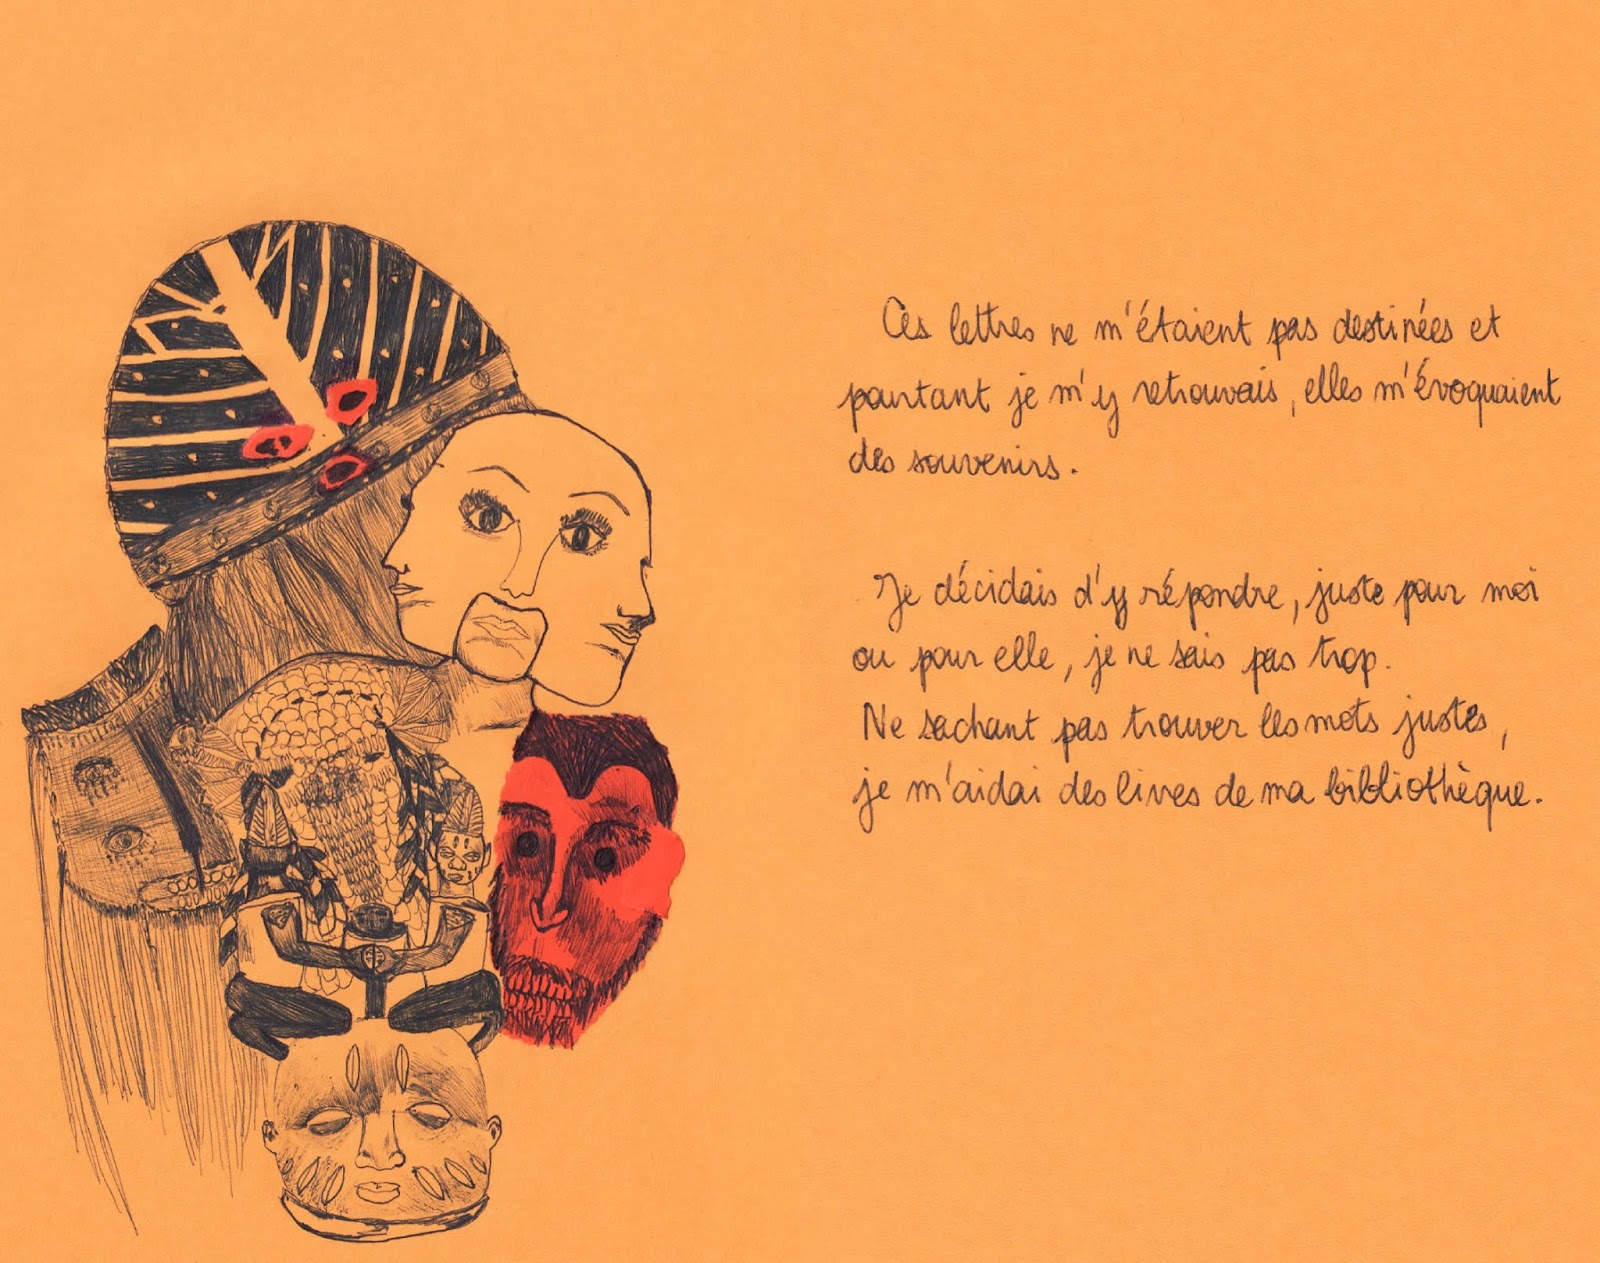 Ces lettres ne m'étaient pas destinées et
pourtant je m'y retrouvais, elles m'évoquaient
des souvenirs.
Je décidais d'y répondre, juste pour moi
ou pour elle, je ne sais pas trop.
Ne sachant pas trouver les mots justes,
je m'aidai des livres de ma bibliothèque.